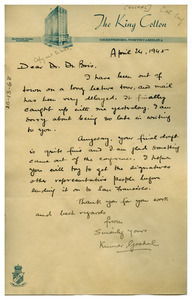 The King Cotton
GREENSBORO, NORTH CAROLINA
April 26, 1945
Dear Dr. Du Bois,
I have been out of
town on a long lecture tour, and mail
has been very delayed. It finally
caught up with me yesterday. I am
sorry about being so late in writing
to you.
Anyway, your final draft
is quite fine and I am glad something
came out of the conference. I hope you
will try to get the signatures
other representative people before
sending it on to San Francisco.
Thank you for your work
and best regards
from
Sincerely yours
Kumar Goshal